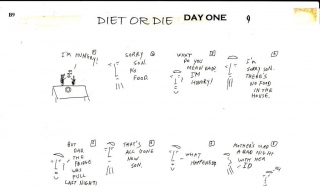 B9
DIET OR DIE DAY ONE 9
I'M HUNGRY!
SORRY
SON.
NO
FOOD.
WHAT
DO YOU
MEAN DAD?
I'M
HUNGRY!
I'M
SORRY SON.
THERE'S
NO FOOD
IN THE
HOUSE.
BUT
DAD
THE
FRIDGE
WAS
FULL
LAST NIGHT!
THAT'S
ALL GONE
NOW
SON.
WHAT
HAPPENED?
MOTHER'S HAD
A BAD NIGHT
WITH HER